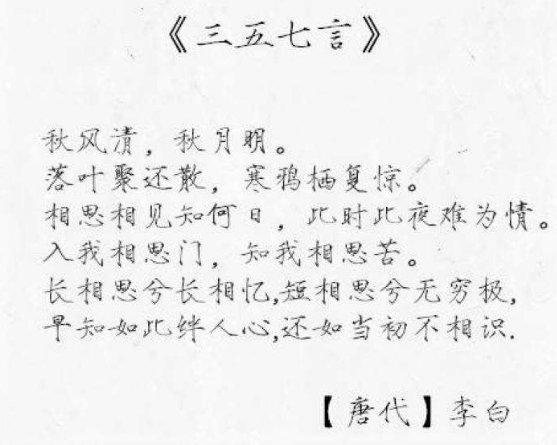 《三五七言》
秋风清，秋月明。
落叶聚还散，寒鸦栖复惊。
相思相见知何日，此时此夜难为情。
入我相思门，知我相思苦。
长相思兮长相忆,短相思兮无穷极,
早知如此绊人心,还如当初不相识.
【唐代】李白